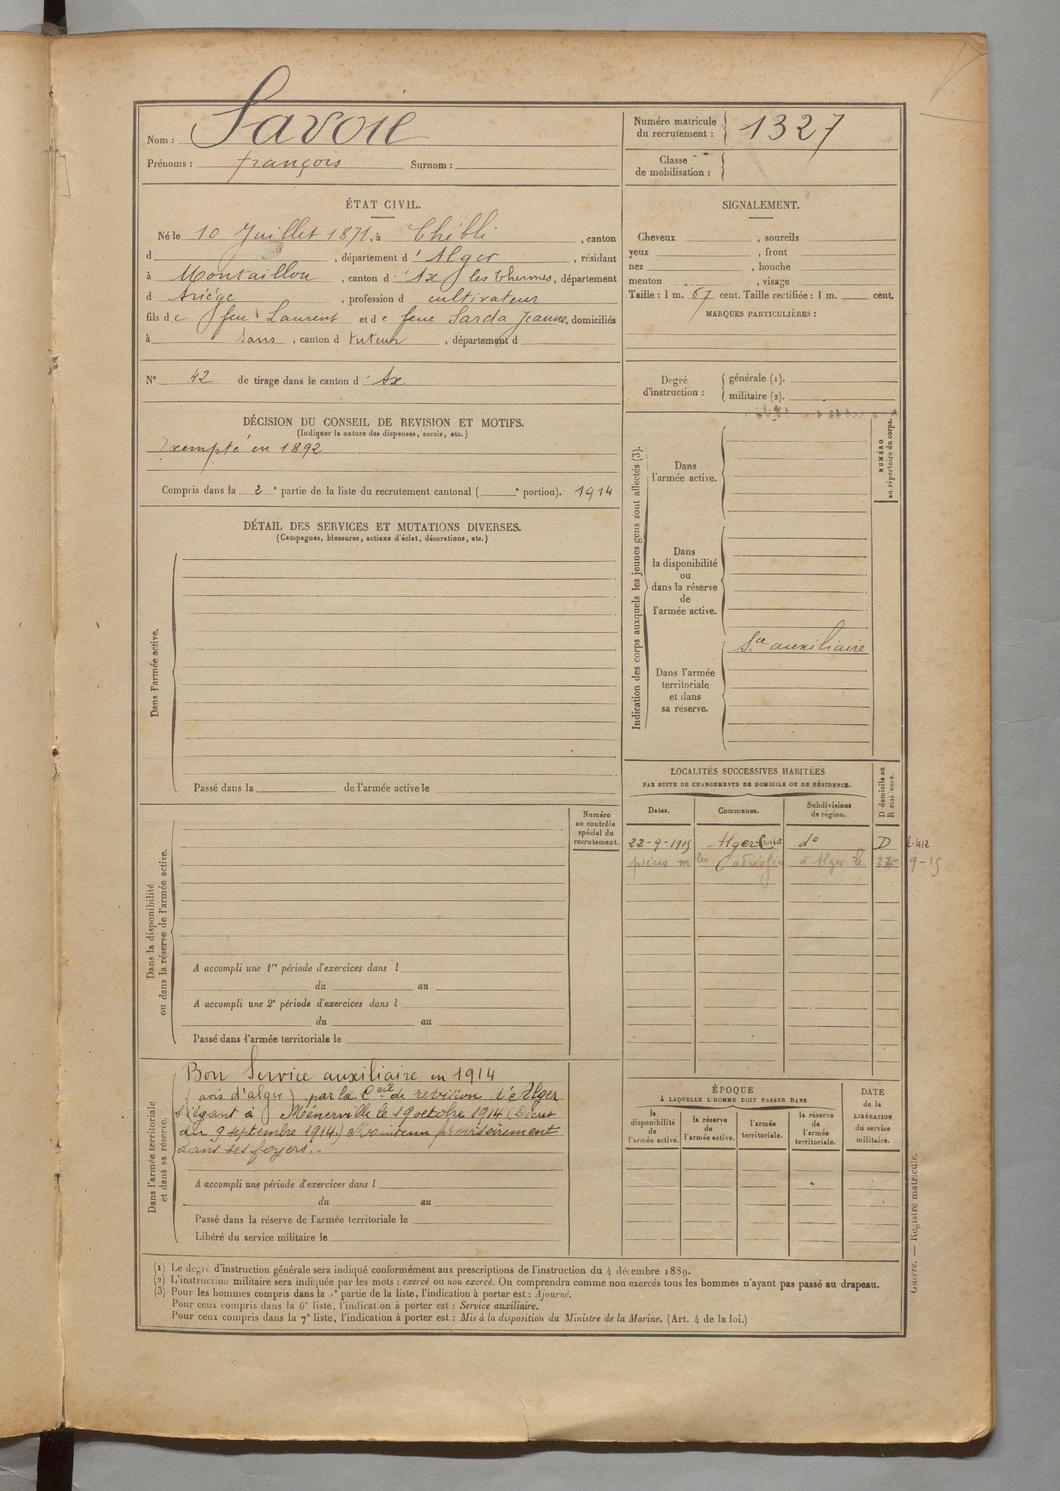 Nom : Savoie
Prénoms : françois Surnom :
Numéro matricule
du recrutement : 1327
Classe
de mobilisation :
ÉTAT CIVIL.
Né le 10 Juillet 1871, à Chébli , canton
d , département d'Alger , résidant
à Montaillou , canton d'Ax les thermes, département
d Ariége , profession d cultivateur
fils de feu Laurent et de feue Sarda Jeanne, domiciliés
à Sans , canton d tuteur , département d
N° 42 de tirage dans le canton d'Ax
DÉCISION DU CONSEIL DE REVISION ET MOTIFS.
(Indiquer la nature des dispenses, sursis, etc.)
Exempté en 1892
Compris dans la 2e partie de la liste du recrutement cantonal ( e portion). 1914
DÉTAIL DES SERVICES ET MUTATIONS DIVERSES.
(Campagnes, blessures, actions d'éclat, décorations, etc.)
Dans l'armée active.
Passé dans la de l'armée active le
Numéro
au contrôle
spécial du
recrutement.
Dans la disponibilité
ou dans la réserve de l'armée active.
A accompli une 1re période d'exercices dans l
du au
A accompli une 2e période d'exercices dans l
du au
Passé dans l'armée territoriale le
Dans l'armée territoriale
et dans sa réserve.
Bon Service auxiliaire en 1914
(avis d'alger) par le Ceil de revision d'Alger
Siégeant à Ménerville le 19 octobre 1914 (Décret
du 9 septembre 1914.) Maintenu provisoirement
dans ses foyers.
A accompli une période d'exercices dans l
du au
Passé dans la réserve de l'armée territoriale le
Libéré du service militaire le
SIGNALEMENT.
Cheveux , sourcils
yeux , front
nez , bouche
menton , visage
Taille : 1 m. 67 cent. Taille rectifiée : 1 m. cent.
MARQUES PARTICULIÈRES :
Degré
d'instruction :
générale (1).
militaire (2).
Indication des corps auxquels les jeunes gens sont affectés (3).
NUMÉRO
au répertoire du corps.
Dans
l'armée active.
Dans
la disponibilité
ou
dans la réserve
de
l'armée active.
Dans l'armée
territoriale
et dans
sa réserve.
Sce auxiliaire
LOCALITÉS SUCCESSIVES HABITÉES
PAR SUITE DE CHANGEMENTS DE DOMICILE OU DE RÉSIDENCE.
D domicile ou
R résidence.
Dates. Communes. Subdivisions
de région.
22-9-1915 Alger do D
à Alger le 9-15
ÉPOQUE
À LAQUELLE L'HOMME DOIT PASSER DANS
la
disponibilité
de
l'armée active.
la réserve
de
l'armée active.
l'armée
territoriale.
la réserve
de
l'armée
territoriale.
DATE
de la
LIBÉRATION
du service
militaire.
Guerre. — Registre matricule.
(1) Le degré d'instruction générale sera indiqué conformément aux prescriptions de l'instruction du 4 décembre 1889.
(2) L'instruction militaire sera indiquée par les mots : exercé ou non exercé. On comprendra comme non exercés tous les hommes n'ayant pas passé au drapeau.
(3) Pour les hommes compris dans la partie de la liste, l'indication à porter est : Ajourné.
Pour ceux compris dans la 6e liste, l'indication à porter est : Service auxiliaire.
Pour ceux compris dans la 7e liste, l'indication à porter est : Mis à la disposition du Ministre de la Marine. (Art. 4 de la loi.)